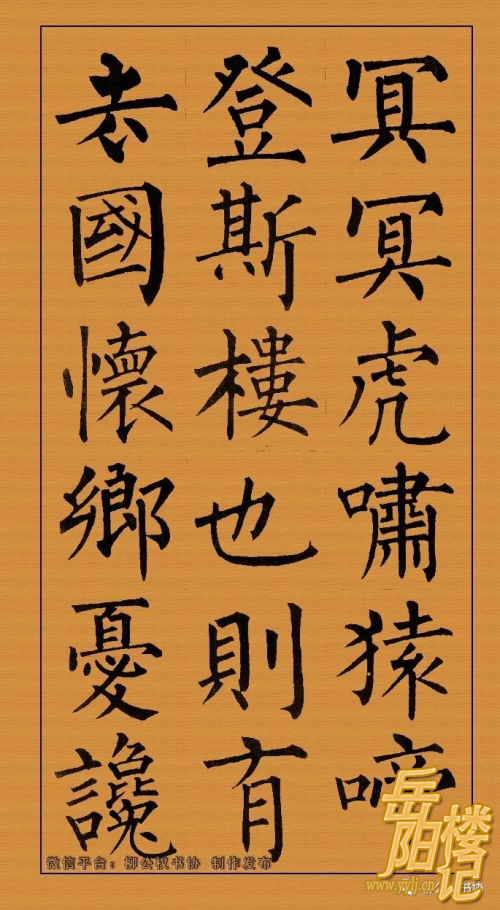 冥冥虎嘯猿啼
登斯樓也則有
去國懷鄉憂讒
微信平台：柳公权书协 制作发布
岳阳楼记
www.yylj.cn